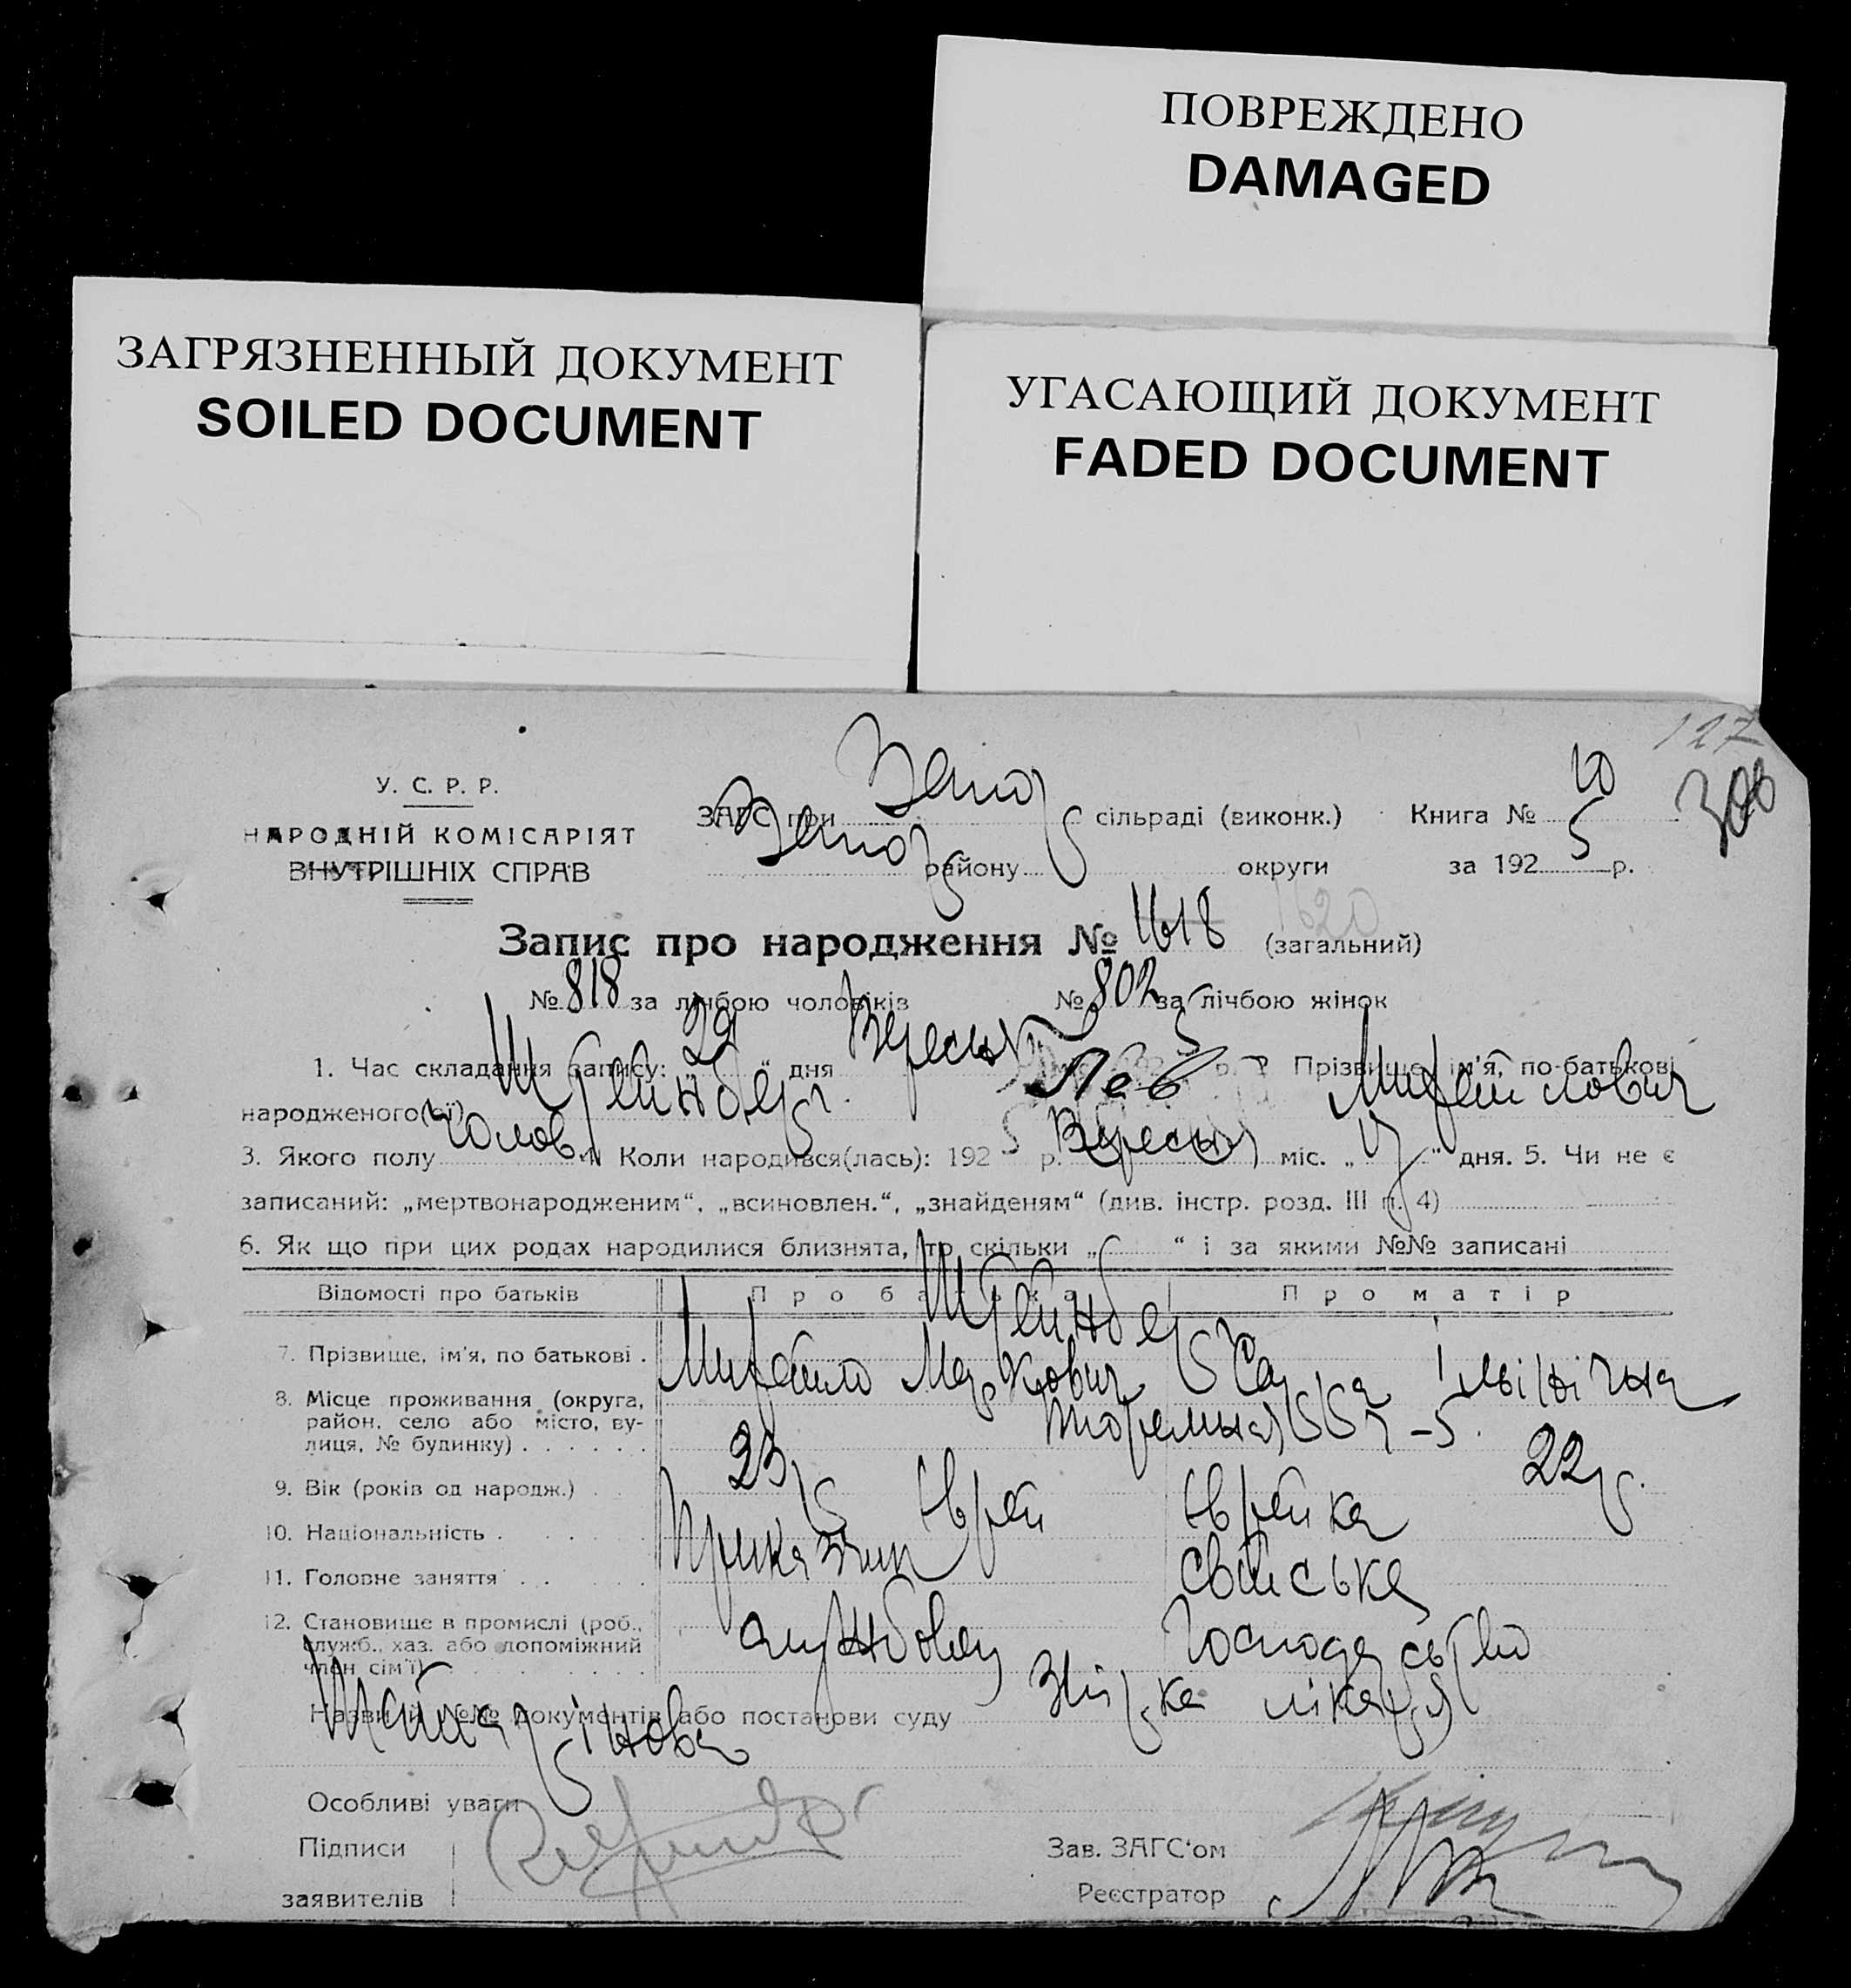 ПОВРЕЖДЕНО
DAMAGED
ЗАГРЯЗНЕННЫЙ ДОКУМЕНТ
SOILED DOCUMENT
УГАСАЮЩИЙ ДОКУМЕНТ
FADED DOCUMENT
127
300
У. С. Р. Р.
НАРОДНІЙ КОМІСАРІЯТ
ВНУТРІШНІХ СПРАВ
ЗАГС при Запор сільраді (виконк.) Книга № 10
Запор району округи за 1925 р.
Запис про народження № 1618 (загальний) 1620
№ 818 за лічбою чоловіків № 802 за лічбою жінок
1. Час складання запису: „29“ дня Вересня 5 р. 2 Прізвище, ім'я, по-батькові
народженого(ої) Штейнберг Лев Михайлович
3. Якого полу Чолов. 4. Коли народився(лась): 1925 р. Вересня міс. „17“ дня. 5. Чи не є
записаний: „мертвонародженим“, „всиновлен.“, „знайденям“ (див. інстр. розд. III п. 4)
6. Як що при цих родах народилися близнята, то скільки „ “ і за якими №№ записані
Відомості про батьків Про батька Про матір
7. Прізвище, ім'я, по батькові . Штейнберг
Михайло Маркович Сарка
8. Місце проживання (округа,
район, село або місто, ву-
лиця, № будинку) . . . . . .
9. Вік (років од народж.) . . 23 р 22 р.
10. Національність . . . . . . Єврей Єврейка
11. Головне заняття . . . . Приказчик свійське
12. Становище в промислі (роб.,
служб., хаз. або допоміжний
член сім'ї) . . . . . . . службовець господарство
Назви й №№ документів або постанови суду лікаря
Особливі уваги
Підписи
заявителів
Зав. ЗАГС'ом
Реєстратор